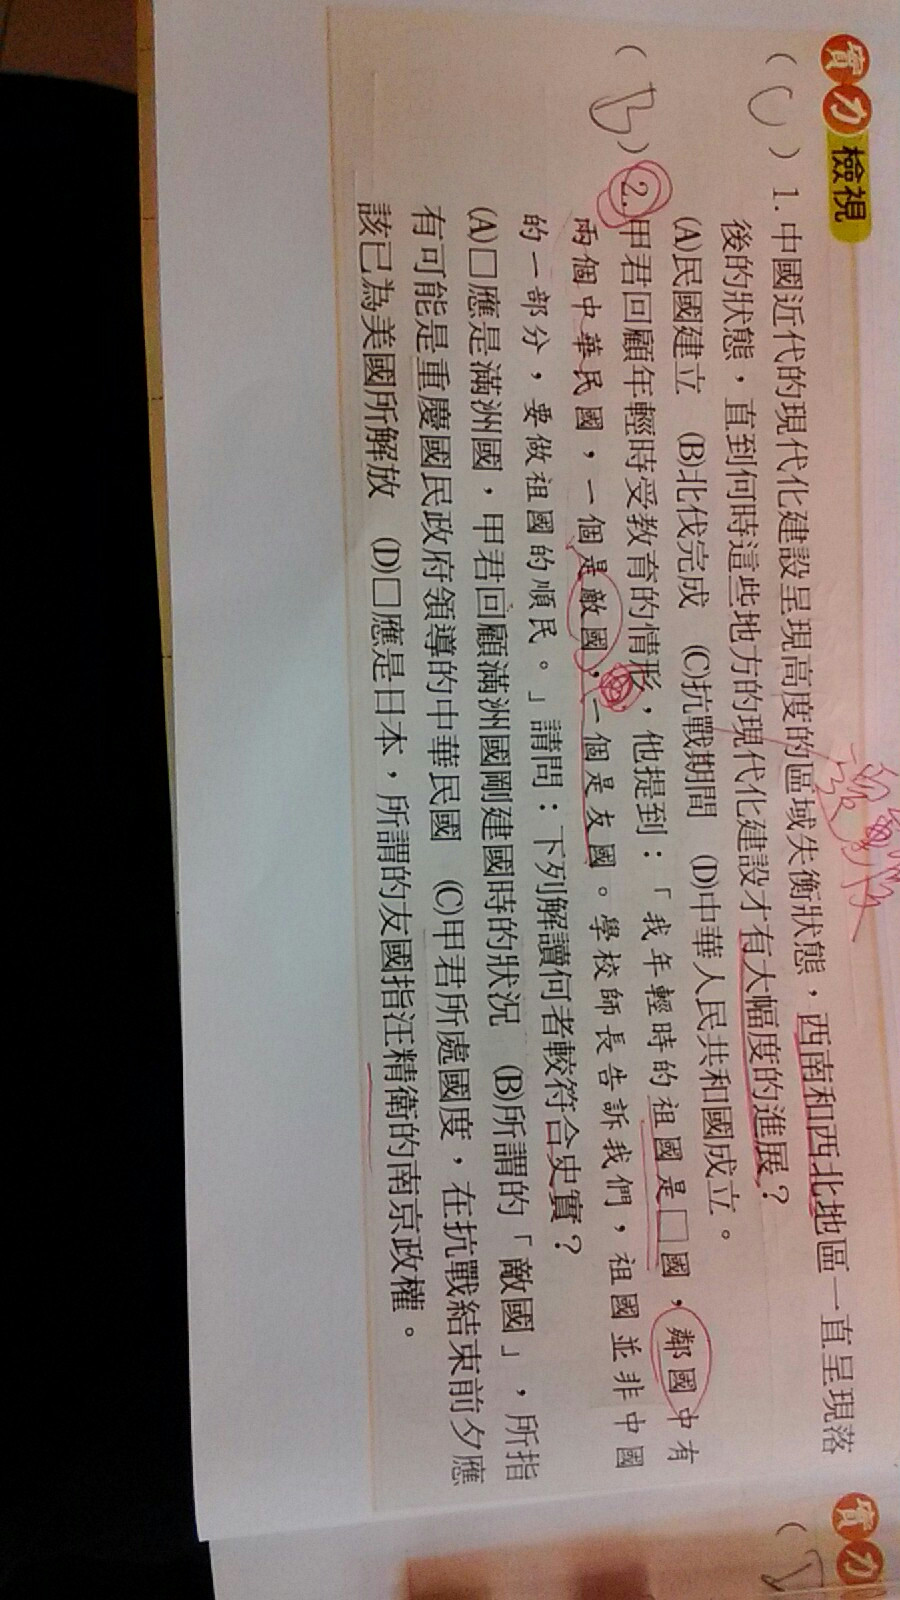 實力檢視
( C ) 1. 中國近代的現代化建設呈現高度的區域失衡狀態，西南和西北地區一直呈現落
後的狀態，直到何時這些地方的現代化建設才有大幅度的進展？
(A)民國建立 (B)北伐完成 (C)抗戰期間 (D)中華人民共和國成立。
( B ) 2. 甲君回顧年輕時受教育的情形，他提到：「我年輕時的祖國是□國，鄰國中有
兩個中華民國，一個是敵國，一個是友國。學校師長告訴我們，祖國並非中國
的一部分，要做祖國的順民。」請問：下列解讀何者較符合史實？
(A)□應是滿洲國，甲君回顧滿洲國剛建國時的狀況 (B)所謂的「敵國」，所指
有可能是重慶國民政府領導的中華民國 (C)甲君所處國度，在抗戰結束前夕應
該已為美國所解放 (D)□應是日本，所謂的友國指汪精衛的南京政權。
實力
(